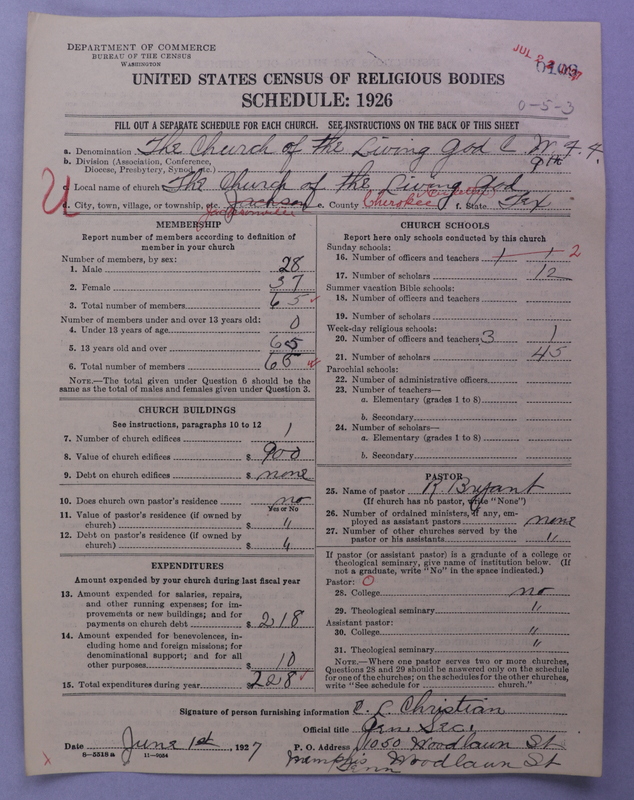 DEPARTMENT OF COMMERCE
BUREAU OF THE CENSUS
WASHINGTON
JUL 2
0-5-3
UNITED STATES CENSUS OF RELIGIOUS BODIES
SCHEDULE: 1926
FILL OUT A SEPARATE SCHEDULE FOR EACH CHURCH. SEE INSTRUCTIONS ON THE BACK OF THIS SHEET
a. Denomination The Church of the Living God C. W. F. F.
b. Division (Association, Conference, Diocese, Presbytery, Synod, etc.) 9th
U
c. Local name of church The Church of the Living God
d. City, town, village, or township, etc. Jackson Jacksonville e. County Cherokee f. State Tex
MEMBERSHIP
Report number of members according to definition of
member in your church
Number of members, by sex:
1. Male 28
2. Female 37
3. Total number of members 65
Number of members under and over 13 years old:
4. Under 13 years of age 0
5. 13 years old and over 65
6. Total number of members 65
NOTE.—The total given under Question 6 should be the
same as the total of males and females given under Question 3.
CHURCH BUILDINGS
See instructions, paragraphs 10 to 12
7. Number of church edifices 1
8. Value of church edifices $ 900
9. Debt on church edifices $ none
10. Does church own pastor's residence no
Yes or No
11. Value of pastor's residence (if owned by
church) $ "
12. Debt on pastor's residence (if owned by
church) $ "
EXPENDITURES
Amount expended by your church during last fiscal year
13. Amount expended for salaries, repairs,
and other running expenses; for im-
provements or new buildings; and for
payments on church debt $ 218
14. Amount expended for benevolences, in-
cluding home and foreign missions; for
denominational support; and for all
other purposes 10
15. Total expenditures during year $ 228
CHURCH SCHOOLS
Report here only schools conducted by this church
Sunday schools:
16. Number of officers and teachers 1 1 2
17. Number of scholars 12
Summer vacation Bible schools:
18. Number of officers and teachers
19. Number of scholars
Week-day religious schools:
20. Number of officers and teachers 3 1
21. Number of scholars 45
Parochial schools:
22. Number of administrative officers
23. Number of teachers—
a. Elementary (grades 1 to 8)
b. Secondary
24. Number of scholars—
a. Elementary (grades 1 to 8)
b. Secondary
PASTOR
25. Name of pastor R. Bryant
(If church has no pastor, write "None")
26. Number of ordained ministers, if any, em-
ployed as assistant pastors none
27. Number of other churches served by the
pastor or his assistants "
If pastor (or assistant pastor) is a graduate of a college or
theological seminary, give name of institution below. (If
not a graduate, write "No" in the space indicated.)
Pastor: O
28. College no
29. Theological seminary "
Assistant pastor:
30. College "
31. Theological seminary "
NOTE.—Where one pastor serves two or more churches,
Questions 28 and 29 should be answered only on the schedule
for one of the churches; on the schedules for the other churches,
write "See schedule for church."
Signature of person furnishing information E. L. Christian
Official title Gen. Sec.
Date June 1st, 1927 P. O. Address 1050 Woodlawn St
8-5518a 11-9054
Memphis Tenn Woodlawn St
X